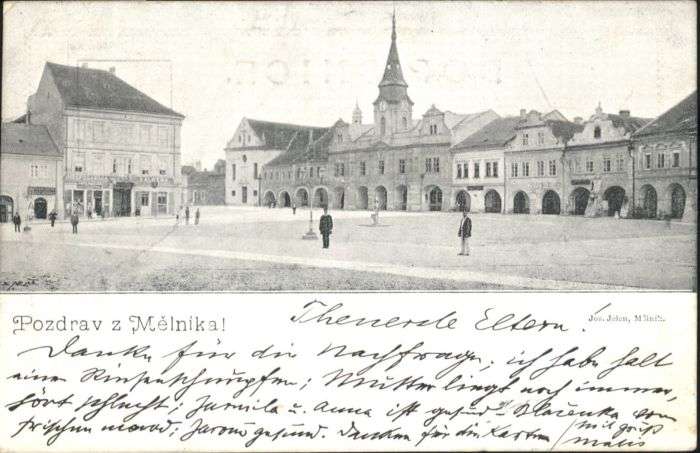 Pozdrav z Mělníka!
Jos. Jelen, Mělník.
Theuerste Eltern!
Danke für die Nachfrage; ich habe halt
einen Riesenschnupfen; Mutter liegt noch immer,
hört schlecht; Jarmila u. Anna ist gesund; Blaženka vom
frischen marod; Jarouš gesund. Danken für die Karten
mit Gruß